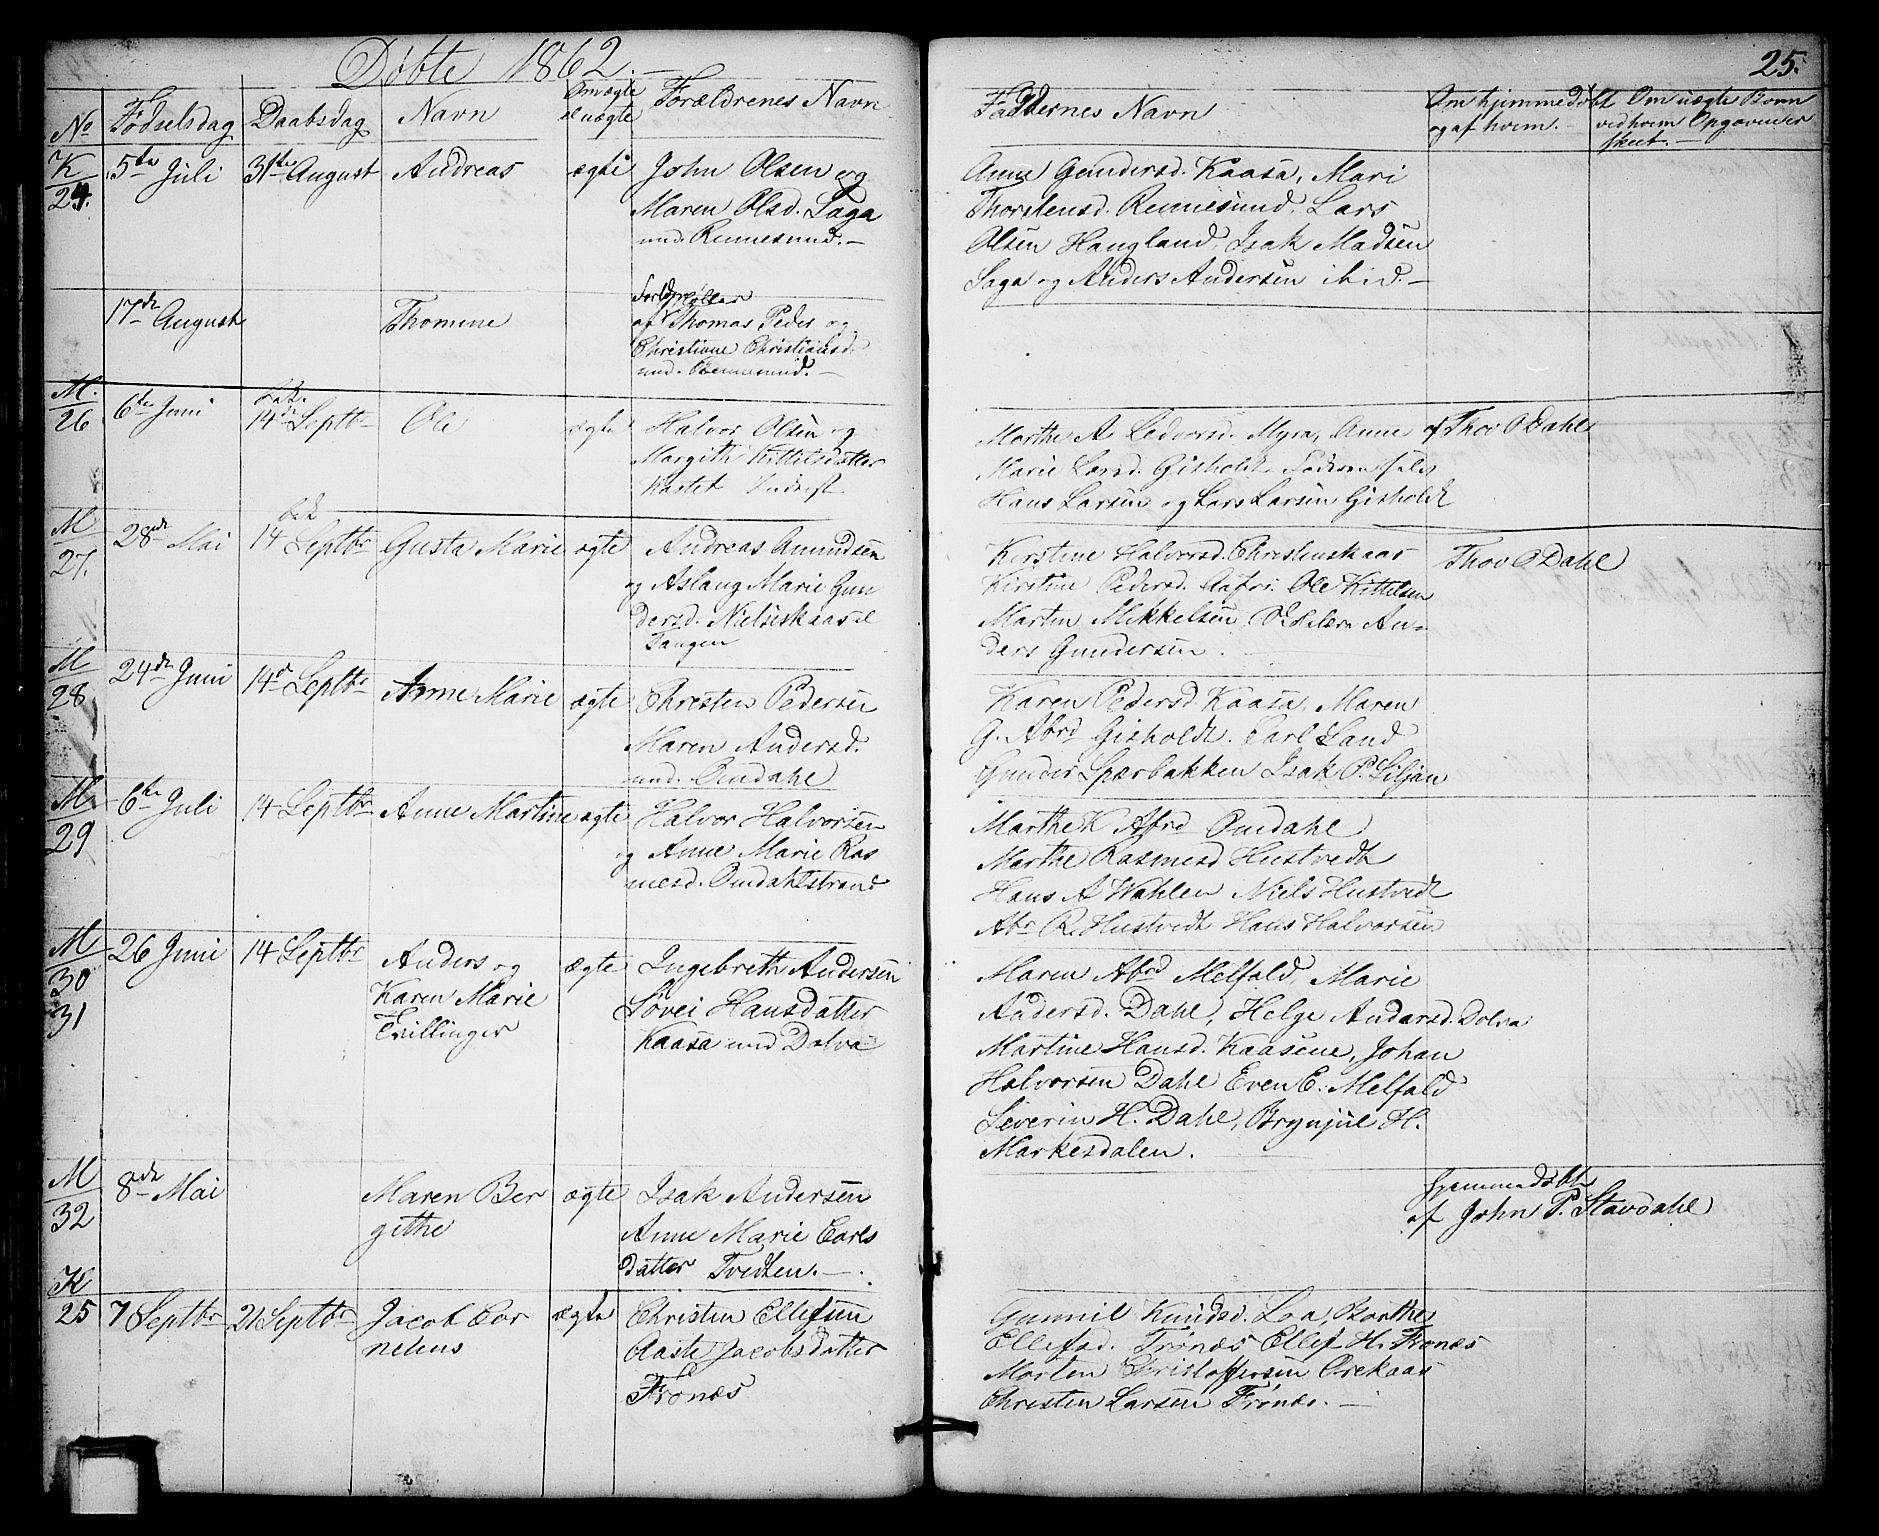 Døbte 1862.
25.
No Fødselsdag Daabsdag Navn Om ægte el uægte Forældrenes Navn
Faddernes Navn Om hjemmedøbt og af hvem. Om uægte Barn ved hvem Opgaven er skeet.
K 24. 5te Juli 31te August Andreas ægte John Olsen og
Maren Olsd. Saga
und. Rennesund.
Anne Gundersd. Kaasa, Mari
Thorstensd. Rennesund, Lars
Olsen Haugland, Isak Madsen
Saga og Anders Andersen ibid.
17de August Thomine
af Thomas Peder og
Christiane Christiansd.
und. Rennesund.
M. 26 6te Juni 14de Septbr Ole ægte Halvor Olsen og
Margith Kittilsdatter
Kastet
Marthe A Ledvorsd. Myra, Anne
Marie Larsd. Gisholdt Faderen selv
Hans Larsen og Lars Larsen Gisholdt
af Thov O Dahl
M 27. 28de Mai 14 Septbr Gusta Marie ægte Andreas Amundsen
og Aslaug Marie Gun
dersd. Nielsiskaas e
Tangen
Kirstine Halvorsd. Christenskaas
Kirstine Pedersd. Aafos. Ole Kittilsen
Martin Mikkelsen An-
ders Gundersen.
Thov O Dahl
M 28 24de Juni 14d Septbr Anne Marie ægte Christen Pedersen
Maren Andersd.
und. Omdahl
Karen Pedersd Kaasa, Maren
G. Abrd Gisholdt. Carl Land
Gunder Sparbakken Isak P. Siljan
M 29 6te Juli 14 Septbr Anne Martine ægte Halvor Halvorsen
og Anne Marie Ras
mesd. Omdahlstrand
Marthe K Abrd Omdahl
Marthe Rasmesd Hustvedt
Hans A Wahlen Niels Hustvedt
Abr R. Hustvedt Hans Halvorsen
M 30 31 26 Juni 14 Septbr Anders og
Karen Marie
Tvillinger
ægte Ingebreth Andersen
Søvei Hansdatter
Kaasa und Dolva
Maren Abrd Melfald, Marie
Andersd. Dahl, Helge Andersd. Dolva
Martine Hansd. Kaasene, Johan
Halvorsen Dahl Even E. Melfald
Severin H. Dahl, Brynjul H.
Markesdalen.
M 32 8de Mai Maren Ber
githe
ægte Isak Andersen
Anne Marie Carls
datter Tvedten.
hjemmedøbt
af John P. Stavdahl
K 25 7 Septbr 21 Septbr Jacob Cor
nelius
ægte Christen Ellefsen
Aaste Jacobsdatter
Frønæs
Gunnil Knudsd. Loa, Borthe
Ellefsd. Frønæs Ellef H. Frønæs
Morten Christoffersen Orekaas
Christen Larsen Frønæs.